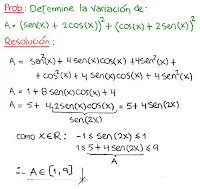 Prob: Determine la variación de:
A = (sen(x) + 2cos(x))² + (cos(x) + 2sen(x))²
Resolución:
A = sen²(x) + 4sen(x)cos(x) + 4sen²(x) +
+ cos²(x) + 4sen(x)cos(x) + 4sen²(x)
A = 1 + 8sen(x)cos(x) + 4
A = 5 + 4.2sen(x)cos(x) = 5 + 4sen(2x)
sen(2x)
como x∈R: -1 ≤ sen(2x) ≤ 1
1 ≤ 5 + 4sen(2x) ≤ 9
A
∴ A ∈ [1,9]